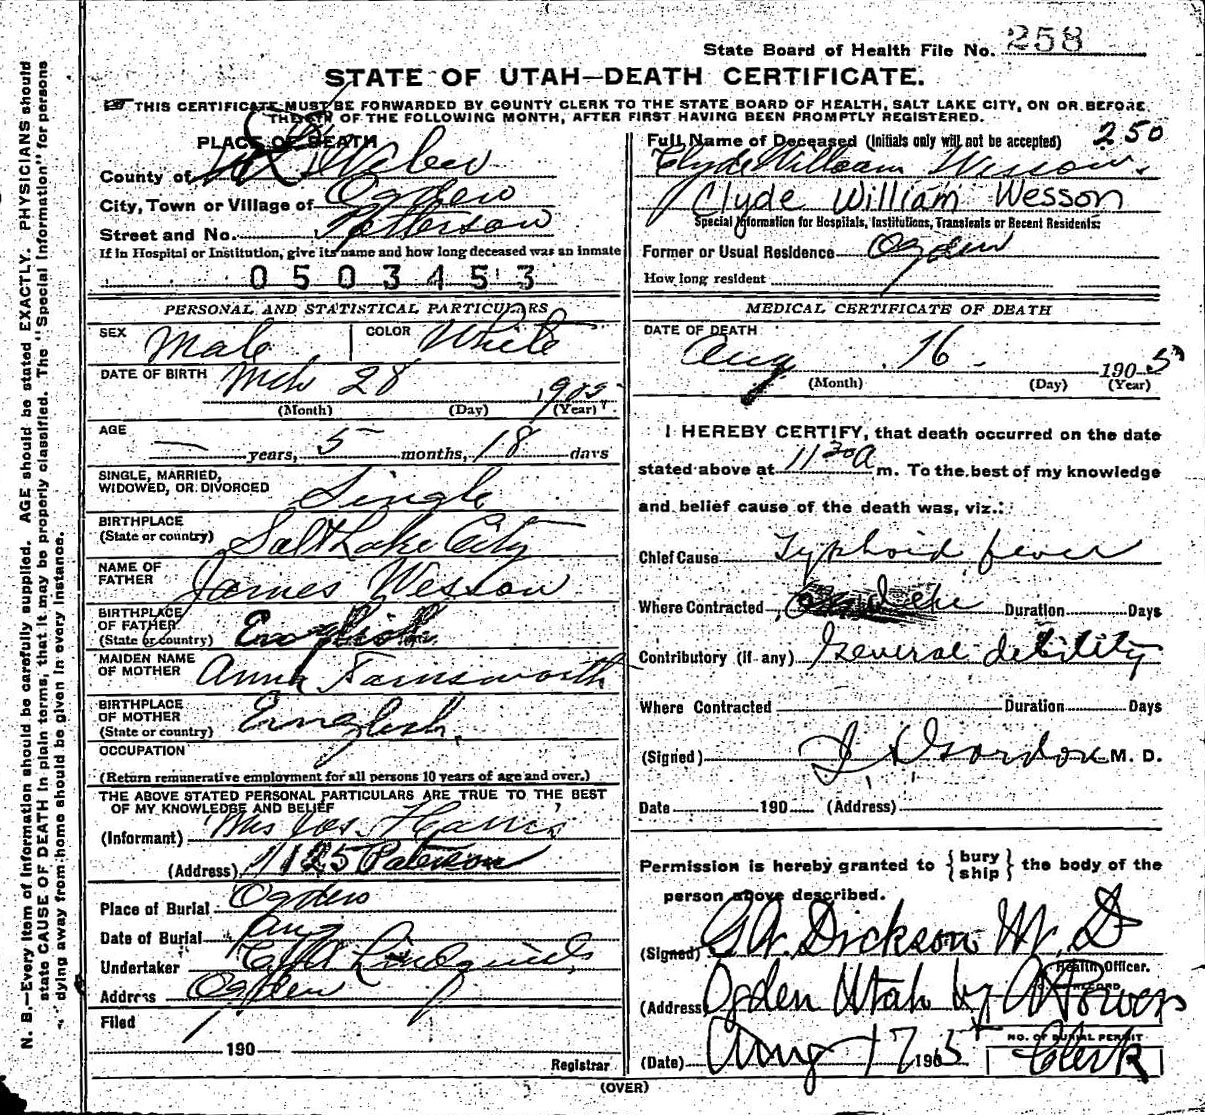 N. B.—Every item of information should be carefully supplied. AGE should be stated EXACTLY. PHYSICIANS should
state CAUSE OF DEATH in plain terms, that it may be properly classified. The "Special Information" for persons
dying away from home should be given in every instance.
State Board of Health File No. 258
STATE OF UTAH—DEATH CERTIFICATE.
THIS CERTIFICATE MUST BE FORWARDED BY COUNTY CLERK TO THE STATE BOARD OF HEALTH, SALT LAKE CITY, ON OR BEFORE
THE 5TH OF THE FOLLOWING MONTH, AFTER FIRST HAVING BEEN PROMPTLY REGISTERED.
PLACE OF DEATH
County of Weber
City, Town or Village of Ogden
Street and No. Patterson
If in Hospital or Institution, give its name and how long deceased was an inmate
0503453
Full Name of Deceased (Initials only will not be accepted) 250
Clyde William Wesson
Clyde William Wesson
Special Information for Hospitals, Institutions, Transients or Recent Residents:
Former or Usual Residence Ogden
How long resident
PERSONAL AND STATISTICAL PARTICULARS
SEX Male COLOR White
DATE OF BIRTH Mch 28 1905
(Month) (Day) (Year)
AGE
— years, 5 months, 18 days
SINGLE, MARRIED,
WIDOWED, OR DIVORCED Single
BIRTHPLACE
(State or country) Salt Lake City
NAME OF
FATHER James Wesson
BIRTHPLACE
OF FATHER
(State or country) English
MAIDEN NAME
OF MOTHER Annie Farnsworth
BIRTHPLACE
OF MOTHER
(State or country) English
OCCUPATION
(Return remunerative employment for all persons 10 years of age and over.)
THE ABOVE STATED PERSONAL PARTICULARS ARE TRUE TO THE BEST
OF MY KNOWLEDGE AND BELIEF
(Informant) Mrs Jos.
(Address) 1125 Paterson
Place of Burial Ogden
Date of Burial Aug
Undertaker Lindquist
Address Ogden
Filed
190
Registrar
MEDICAL CERTIFICATE OF DEATH
DATE OF DEATH
Aug 16 1905
(Month) (Day) (Year)
I HEREBY CERTIFY, that death occurred on the date
stated above at 11 30 A m. To the best of my knowledge
and belief cause of the death was, viz.:
Chief Cause Typhoid fever
Where Contracted Duration Days
Contributory (if any) General debility
Where Contracted Duration Days
(Signed) Gordon M. D.
Date 190 (Address)
Permission is hereby granted to {bury ship} the body of the
person above described.
(Signed) G W. Dickson M. D
Health Officer.
(Address) Ogden Utah by A Powers
NO. OF BURIAL PERMIT
(Date) Aug 17 1905 Clerk
(OVER)